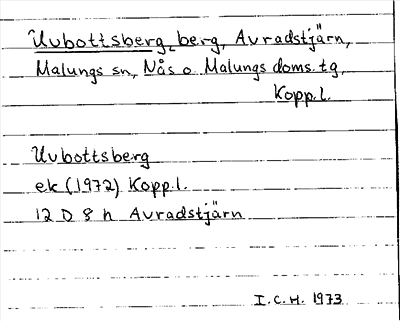 Uvbottsberg, berg, Avradstjärn,
Malungs sn, Nås o Malungs doms. tg,
Kopp. l.
Uvbottsberg
ek (1972) Kopp. l.
12 D 8 h Avradstjärn
I.C.H. 1973